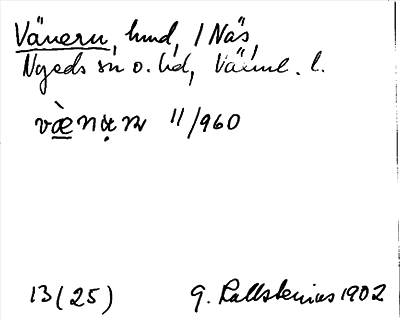 Vänern, hmd, / Näs,
Nyeds sn o. hd, Värml. l.
væ̀nạn 11/960
13 (25) G. Kallstenius 1902